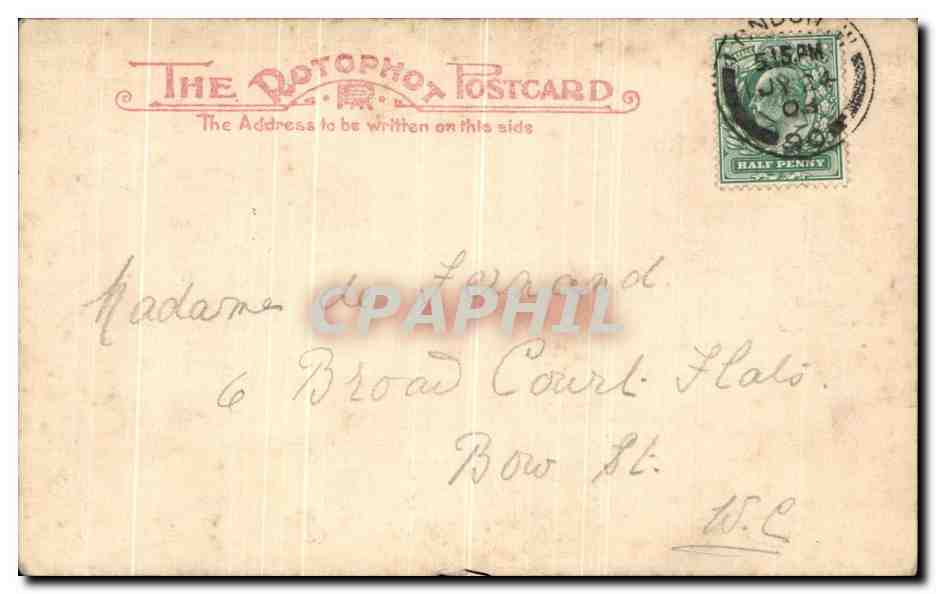 THE ROTOPHOT POSTCARD
The Address to be written on this side
5.15 PM
HALF PENNY
Madame de
CPAPHIL
6 Broad Court Flats.
Bow St.
W.C